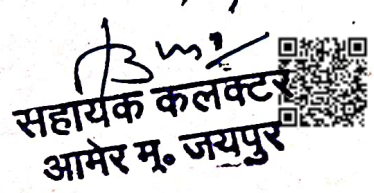 सहायक कलक्टर
आमेर मु. जयपुर